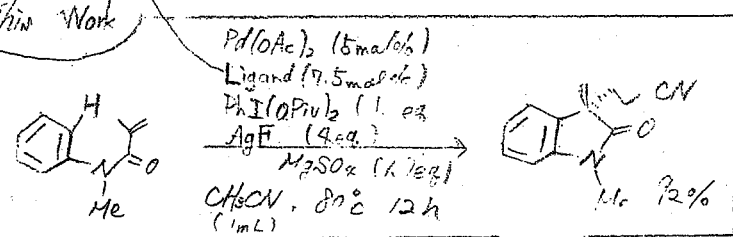 This Work
Pd(OAc)₂ (5mol%)
Ligand (7.5mol%)
PhI(OPiv)₂ (1 eq
AgF (4eq.)
MgSO₄ eq)
CH₃CN. 80°C 12h
(1mL)
H
O
N
Me
CN
O
N
Me 92%